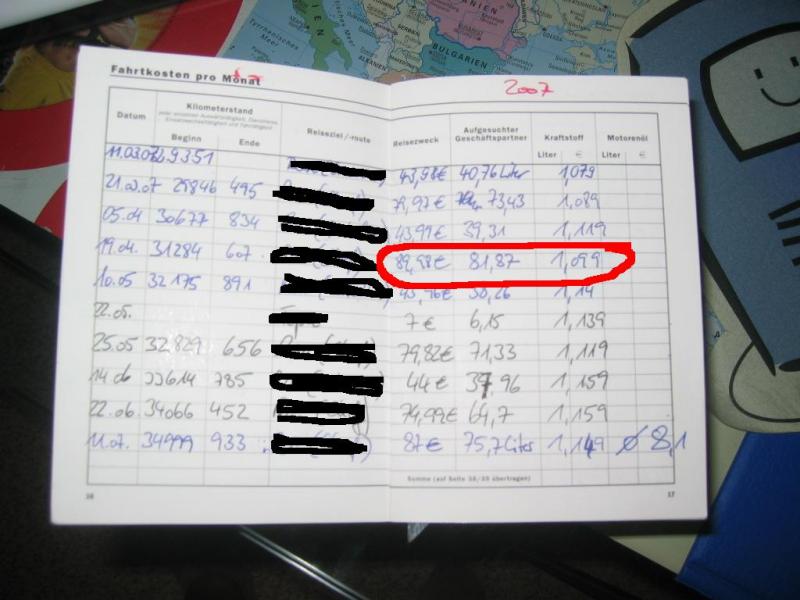 BULGARIEN
Fahrtkosten pro Monat
2007
Datum Kilometerstand Reiseziel/-route Reisezweck Aufgesuchter Geschäftspartner Kraftstoff Motorenöl
Beginn Ende Liter € Liter €
11.03.07 29351 43,98€ 40,76 Liter 1,079
21.03.07 29846 495 79,97€ 73,43 1,089
05.04 30677 831 43,99€ 39,31 1,119
19.04. 31284 607 89,98€ 81,87 1,099
10.05 32175 891 43,76€ 38,26 1,14
22.05. 7€ 6,15 1,139
25.05 32829 656 79,82€ 71,33 1,119
14.06 33614 785 44€ 37,96 1,159
22.06. 34066 452 74,99€ 64,7 1,159
11.07. 34999 933 87€ 75,7 Liter 1,149 ø 8,1
Summe (auf Seite 38/39 übertragen)
16 17